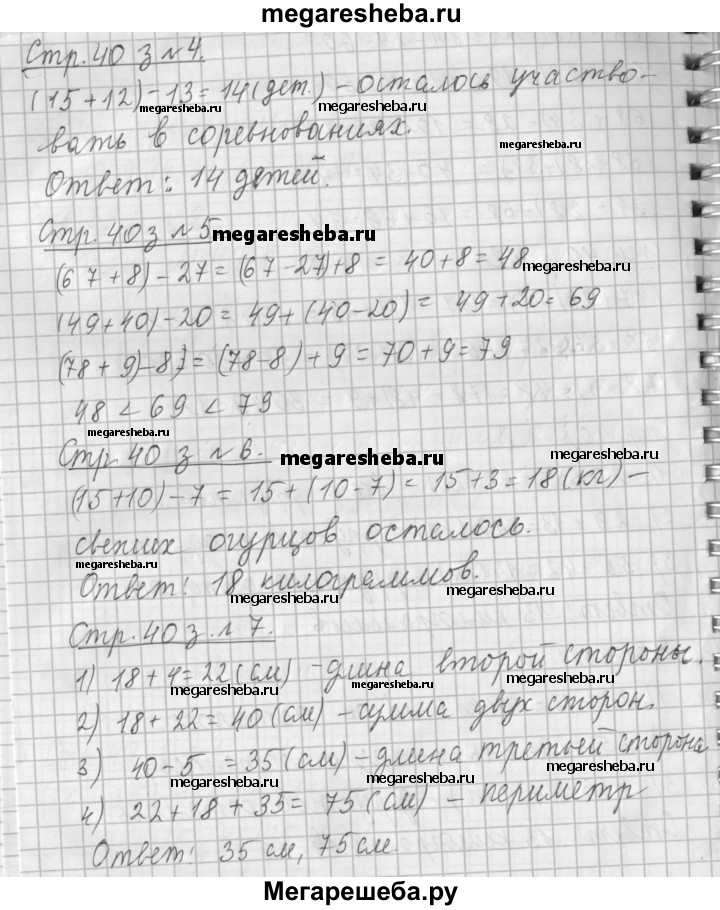 megaresheba.ru
Стр. 40 з №4.
(15+12)-13=14(дет.) - осталось участво-
megaresheba.ru megaresheba.ru megaresheba.ru
вать в соревнованиях.
megaresheba.ru
Ответ: 14 детей.
megaresheba.ru
Стр. 40 з №5 megaresheba.ru
(67+8)-27=(67-27)+8 = 40+8=48
megaresheba.ru
(49+40)-20= 49+(40-20)= 49+20=69
megaresheba.ru megaresheba.ru megaresheba.ru
(78+9)-8)=(78-8)+9=70+9=79
48<69<79
megaresheba.ru
Стр 40 з №6. megaresheba.ru
(15+10)-7=15+(10-7)=15+3=18(кг)-
свежих огурцов осталось.
megaresheba.ru
Ответ: 18 килограммов.
megaresheba.ru megaresheba.ru
Стр. 40 з. №7.
1) 18+4=22(см) -длина второй стороны.
megaresheba.ru megaresheba.ru megaresheba.ru
2) 18+22=40(см)-сумма двух сторон.
megaresheba.ru
3) 40-5 =35(см)-длина третьей сторона
megaresheba.ru megaresheba.ru megaresheba.ru
4) 22+18+35= 75(см) - периметр
Ответ: 35 см, 75 см.
Мегарешеба.ру